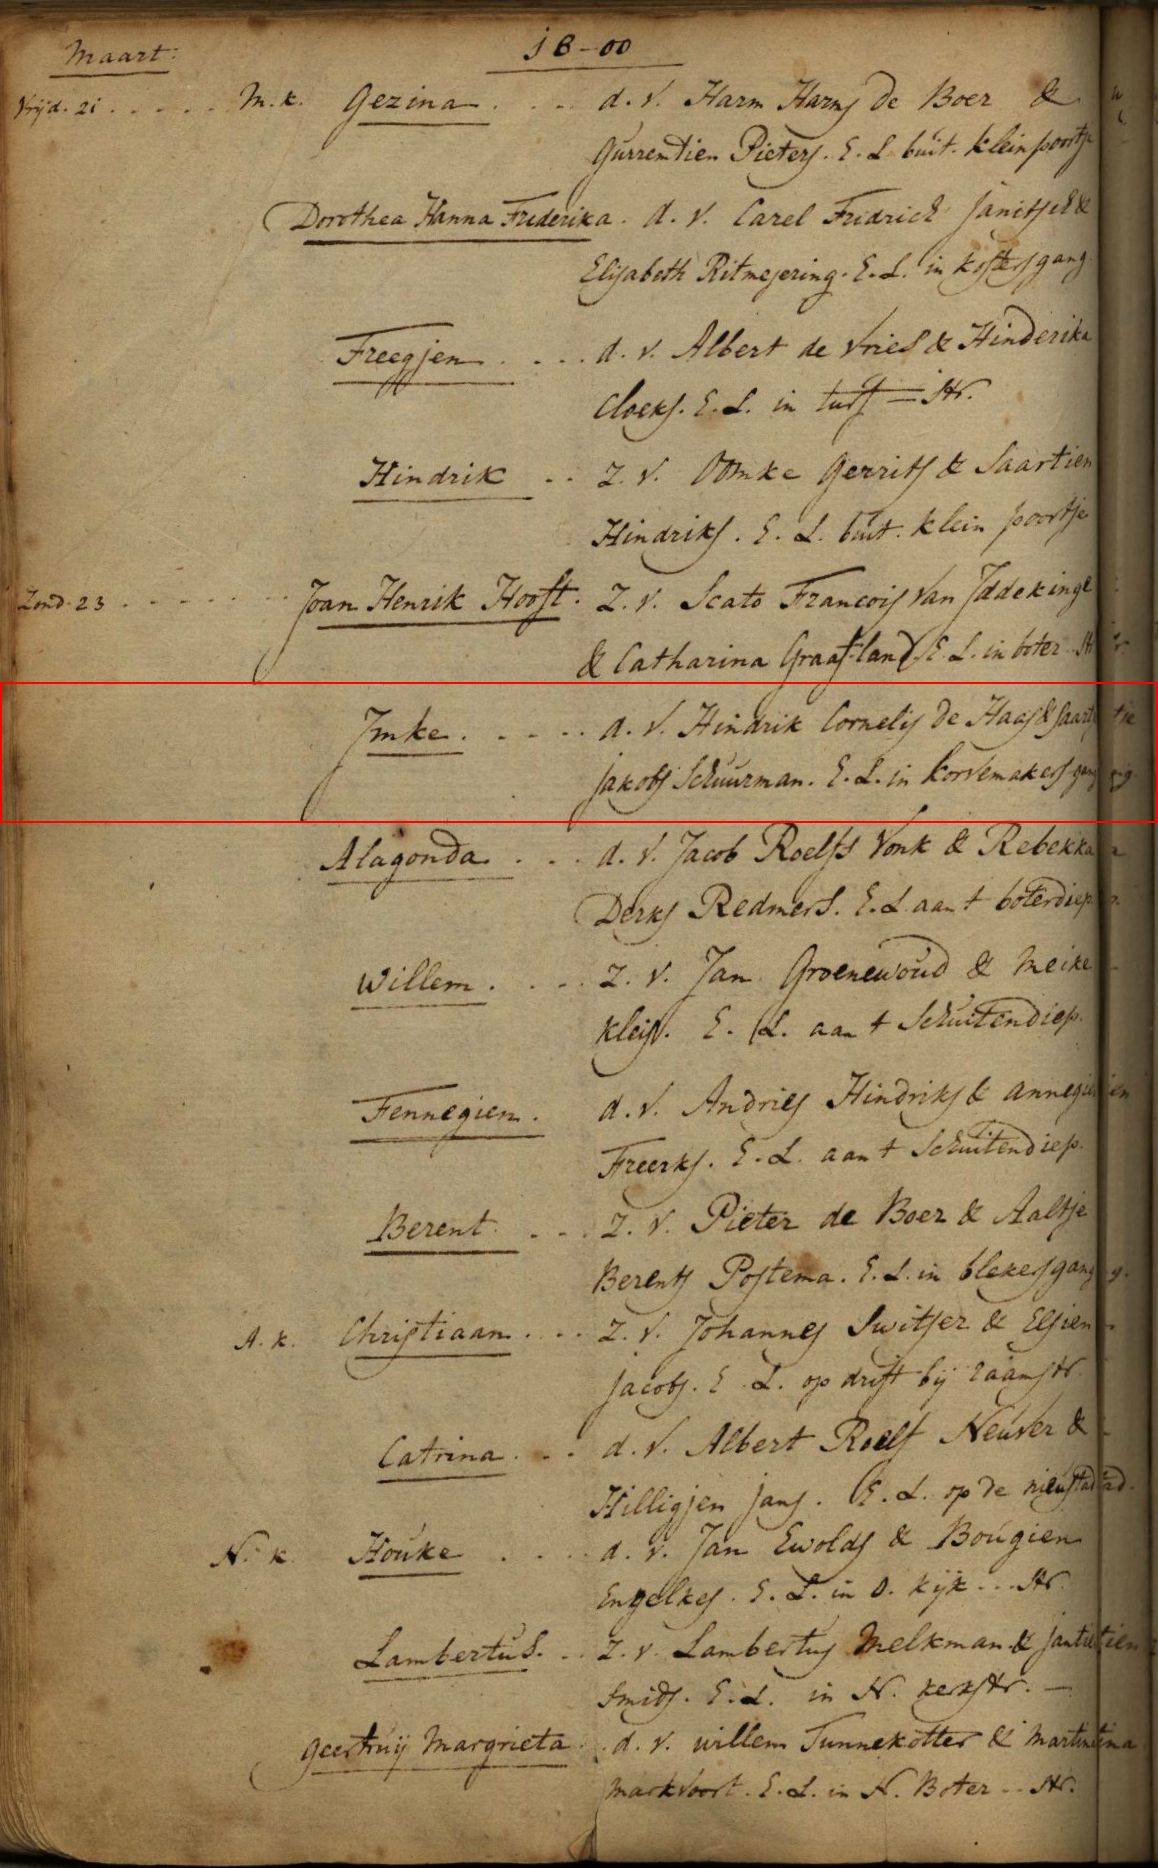 Maart: 18-00
Vrijd. 21 . . . . . M. k. Gezina . . . . d. v. Harm Harms de Boer &
Gurrentien Pieters. E. L. buit. kleinpoortje
Dorothea Hanna Frederika. d. v. Carel Fridrich &
Elisabeth Ritmejering. E. L. in kostersgang.
Freegjen . . . . d. v. Albert de Vries & Hinderika
Cloeks. E. L. in turf = str.
Hindrik . . z. v. Oomke Gerrits & Saartien
Hindriks. E. L. buit. klein poortje
Zond. 23 . . . . . . . Joan Henrik Hooft. z. v. Scato Francois van Iddekinge
& Catharina Graafland E. L. in boter - str.
Imke . . . . . d. v. Hindrik Cornelis de Haas & Saartie
jakobs Schuurman. E. L. in korvemakersgang
Alagonda . . . d. v. Jacob Roelfs Vonk & Rebekka
Derks Redmers. E. L. aan t boterdiep
Willem . . . . z. v. Jan Groenewoud & Meike
Kleis. E. L. aan t Schuitendiep.
Fennegien . d. v. Andries Hindriks & annegien
Freerks. E. L. aan t Schuitendiep.
Berent . . . . z. v. Pieter de Boer & Aaltje
Berents Postema. E. L. in blekersgang.
A. k. Christiaan . . . . z. v. Johannes Switser & Elsien
jacobs. E. L. op drift bij raamstr.
Catrina . . . d. v. Albert Roelf Neuver &
Hilligjen jans. E. L. op de nieustad.
N. k. Houke . . . . d. v. Jan Ewolds & Bougien
Engelkes. E. L. in O. kijk . . . str.
Lambertus. . . z. v. Lambertus Melkman & jantien
Smids. E. L. in N. kerkstr. —
Geertruij Margrieta . . d. v. willem Tunnekotter & Martina
Markvoort. E. L. in N. Boter . . str.